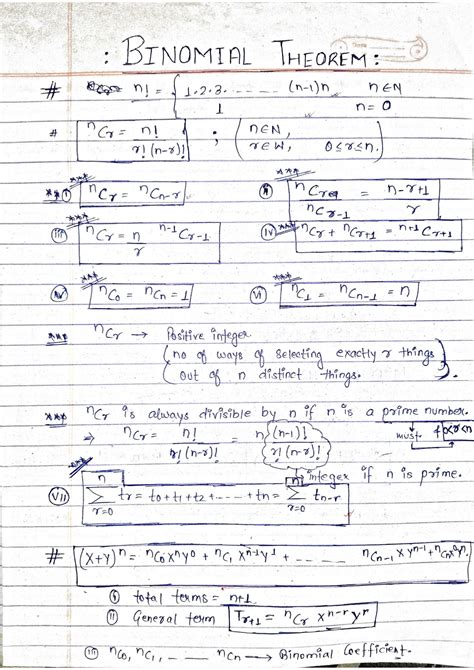 : BINOMIAL THEOREM :
# n! = { 1.2.3. ---- (n-1)n n∈N
1 n=0
# ⁿCᵣ = n! / r!(n-r)! ; ( n∈N, r∈W, 0≤r≤n. )
*** (i) ⁿCᵣ = ⁿCₙ₋ᵣ *** (ii) ⁿCᵣ / ⁿCᵣ₋₁ = n-r+1 / r
*** (iii) ⁿCᵣ = n/r ⁿ⁻¹Cᵣ₋₁ (iv) *** ⁿCᵣ + ⁿCᵣ₊₁ = ⁿ⁺¹Cᵣ₊₁
*** (iv) ⁿC₀ = ⁿCₙ = 1 *** (vi) ⁿC₁ = ⁿCₙ₋₁ = n
*** ⁿCᵣ → Positive integer
(no of ways of selecting exactly r things
out of n distinct things.)
*** ⁿCᵣ is always divisible by n if n is a prime number.
⇒ ⁿCᵣ = n! / r!(n-r)! = n {(n-1)! / r!(n-r)!} must
integer if n is prime.
*** (vii) n∑r=0 tᵣ = t₀+t₁+t₂+-----+tₙ = n∑r=0 tₙ₋ᵣ
# (x+y)ⁿ = ⁿC₀xⁿy⁰ + ⁿC₁xⁿ⁻¹y¹ + ------ ⁿCₙ₋₁xyⁿ⁻¹+ⁿCₙx⁰yⁿ.
(i) total terms = n+1
(ii) General term Tᵣ₊₁ = ⁿCᵣ xⁿ⁻ʳyʳ
(iii) ⁿC₀, ⁿC₁, -- ---- ⁿCₙ → Binomial Coefficient.